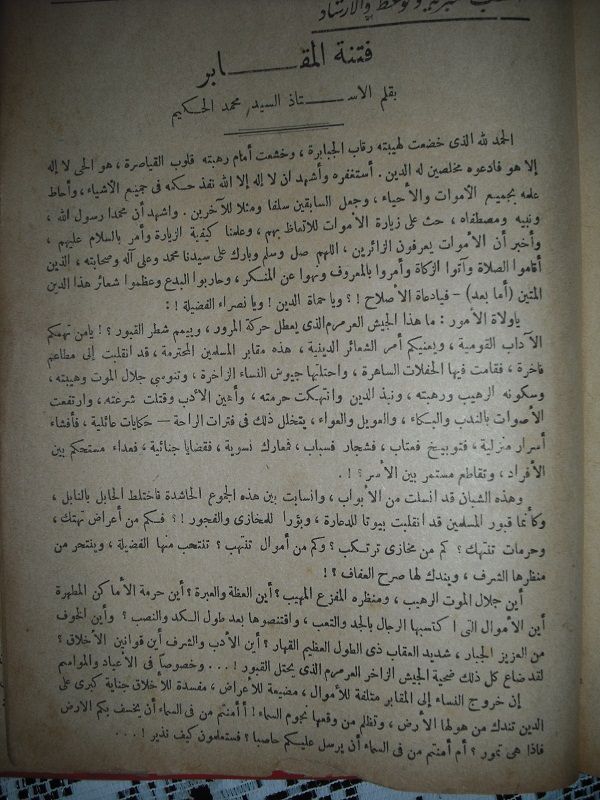 والوعظ والارشاد
فتنة المقـــابر
بقلم الاســـتاذ السيد محمد الحكيم
الحمد لله الذى خضعت لهيبته رقاب الجبابرة ، وخشعت أمام رهبته قلوب القياصرة ، هو الحى لا إله
إلا هو فادعوه مخلصين له الدين . أستغفره وأشهد ان لا إله إلا الله نفذ حكمه فى جميع الأشياء ، وأحاط
علمه بجميع الأموات والأحياء ، وجعل السابقين سلفا ومثلا للآخرين . واشهد أن محمدا رسول الله ،
ونبيه ومصطفاه ، حث على زيارة الأموات للاتعاظ بهم ، وعلمنا كيفية الزيارة وأمر بالسلام عليهم ،
وأخبر أن الأموات يعرفون الزائرين ، اللهم صل وسلم وبارك على سيدنا محمد وعلى آله وصحابته ، الذين
أقاموا الصلاة وآتوا الزكاة وأمروا بالمعروف ونهوا عن المنكر ، وحاربوا البدع وعظموا شعائر هذا الدين
المتين (أما بعد) – فيادعاة الأصلاح ! ؟ ويا حماة الدين ! ويا نصراء الفضيلة ! :
ياولاة الأمور : ما هذا الجيش العرمرم الذى يعطل حركة المرور ، وييمم شطر القبور ؟ ! يامن تهمكم
الآداب القومية ، ويعنيكم أمر الشعائر الدينية ، هذه مقابر المسلمين المحترمة ، قد انقلبت إلى مطاعم
فاخرة ، فقامت فيها الحفلات الساهرة ، واحتلتها جيوش النساء الزاخرة ، وتنوسى جلال الموت وهيبته ،
وسكونه الرهيب ورهبته ، ونبذ الدين وانتهكت حرمته ، وأهين الأدب وقتلت شرعته ، وارتفعت
الأصوات بالندب والبكاء ، والعويل والعواء ، يتخلل ذلك فى فترات الراحة – حكايات عائلية ، فأفشاء
أسرار منزلية ، فتوبيخ فعتاب ، فشجار فسباب ، فمعارك نسوية ، فقضايا جنائية ، فعداء مستحكم بين
الأفراد ، وتقاطع مستمر بين الأسر ؟ ! .
وهذه الشبان قد انسلت من الأبواب ، وانسابت بين هذه الجموع الحاشدة فاختلط الحابل بالنابل ،
وكأنما قبور المسلمين قد انقلبت بيوتا للدعارة ، وبؤرا للمخازى والفجور ! ؟ فكم من أعراض تهتك ،
وحرمات تنتهك ؟ كم من مخازى ترتكب ؟ وكم من أموال تنتهب ؟ تنتحب منها الفضيلة ، وينتحر من
منظرها الشرف ، ويندك لها صرح العفاف ؟ !
أين جلال الموت الرهيب ، ومنظره المفزع المهيب ؟ أين العظة والعبرة ؟ أين حرمة الأماكن المطهرة
أين الأموال التى اكتسبها الرجال بالجد والتعب ، واقتنصوها بعد طول الكد والنصب ؟ وأين الخوف
من العزيز الجبار ، شديد العقاب ذى الطول العظيم القهار ؟ أين الأدب والشرف أين قوانين الأخلاق ؟
لقد ضاع كل ذلك ضحية الجيش الزاخر العرمرم الذى يحتل القبور ! . . . وخصوصا فى الأعياد والمواسم
إن خروج النساء إلى المقابر متلفة للأموال ، مضيعة للأعراض ، مفسدة للأخلاق جناية كبرى على
الدين تندك من هولها الأرض ، وتظلم من وقعها نجوم السماء ! أأمنتم من فى السماء أن يخسف بكم الارض
فاذا هى تمور ؟ أم أمنتم من فى السماء أن يرسل عليكم حاصبا ؟ فستعلمون كيف نذير ! . . .